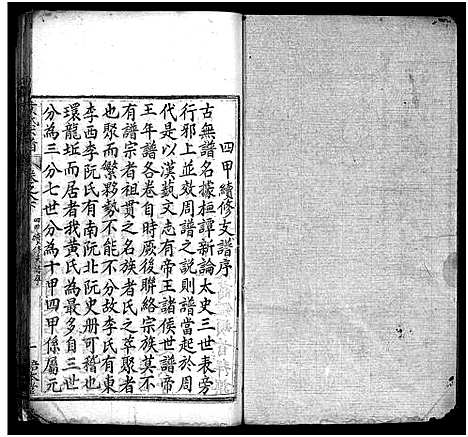 四甲續修支譜序
古無譜名據桓譚新論太史三世表旁
行邪上並效周譜之說則譜當起於周
代是以漢藝文志有帝王諸侯世譜帝
王年譜各卷自時厥後聯絡宗族莫不
有譜宗者祖貫之名族者氏之萃聚者
也聚而繁夥勢不能不分故李氏有東
李西李阮氏有南阮北阮史册可稽也
環龍坵而居者我黃氏為最多自三世
分為三分七世分為十甲四甲係屬元
四甲續修支譜序
一